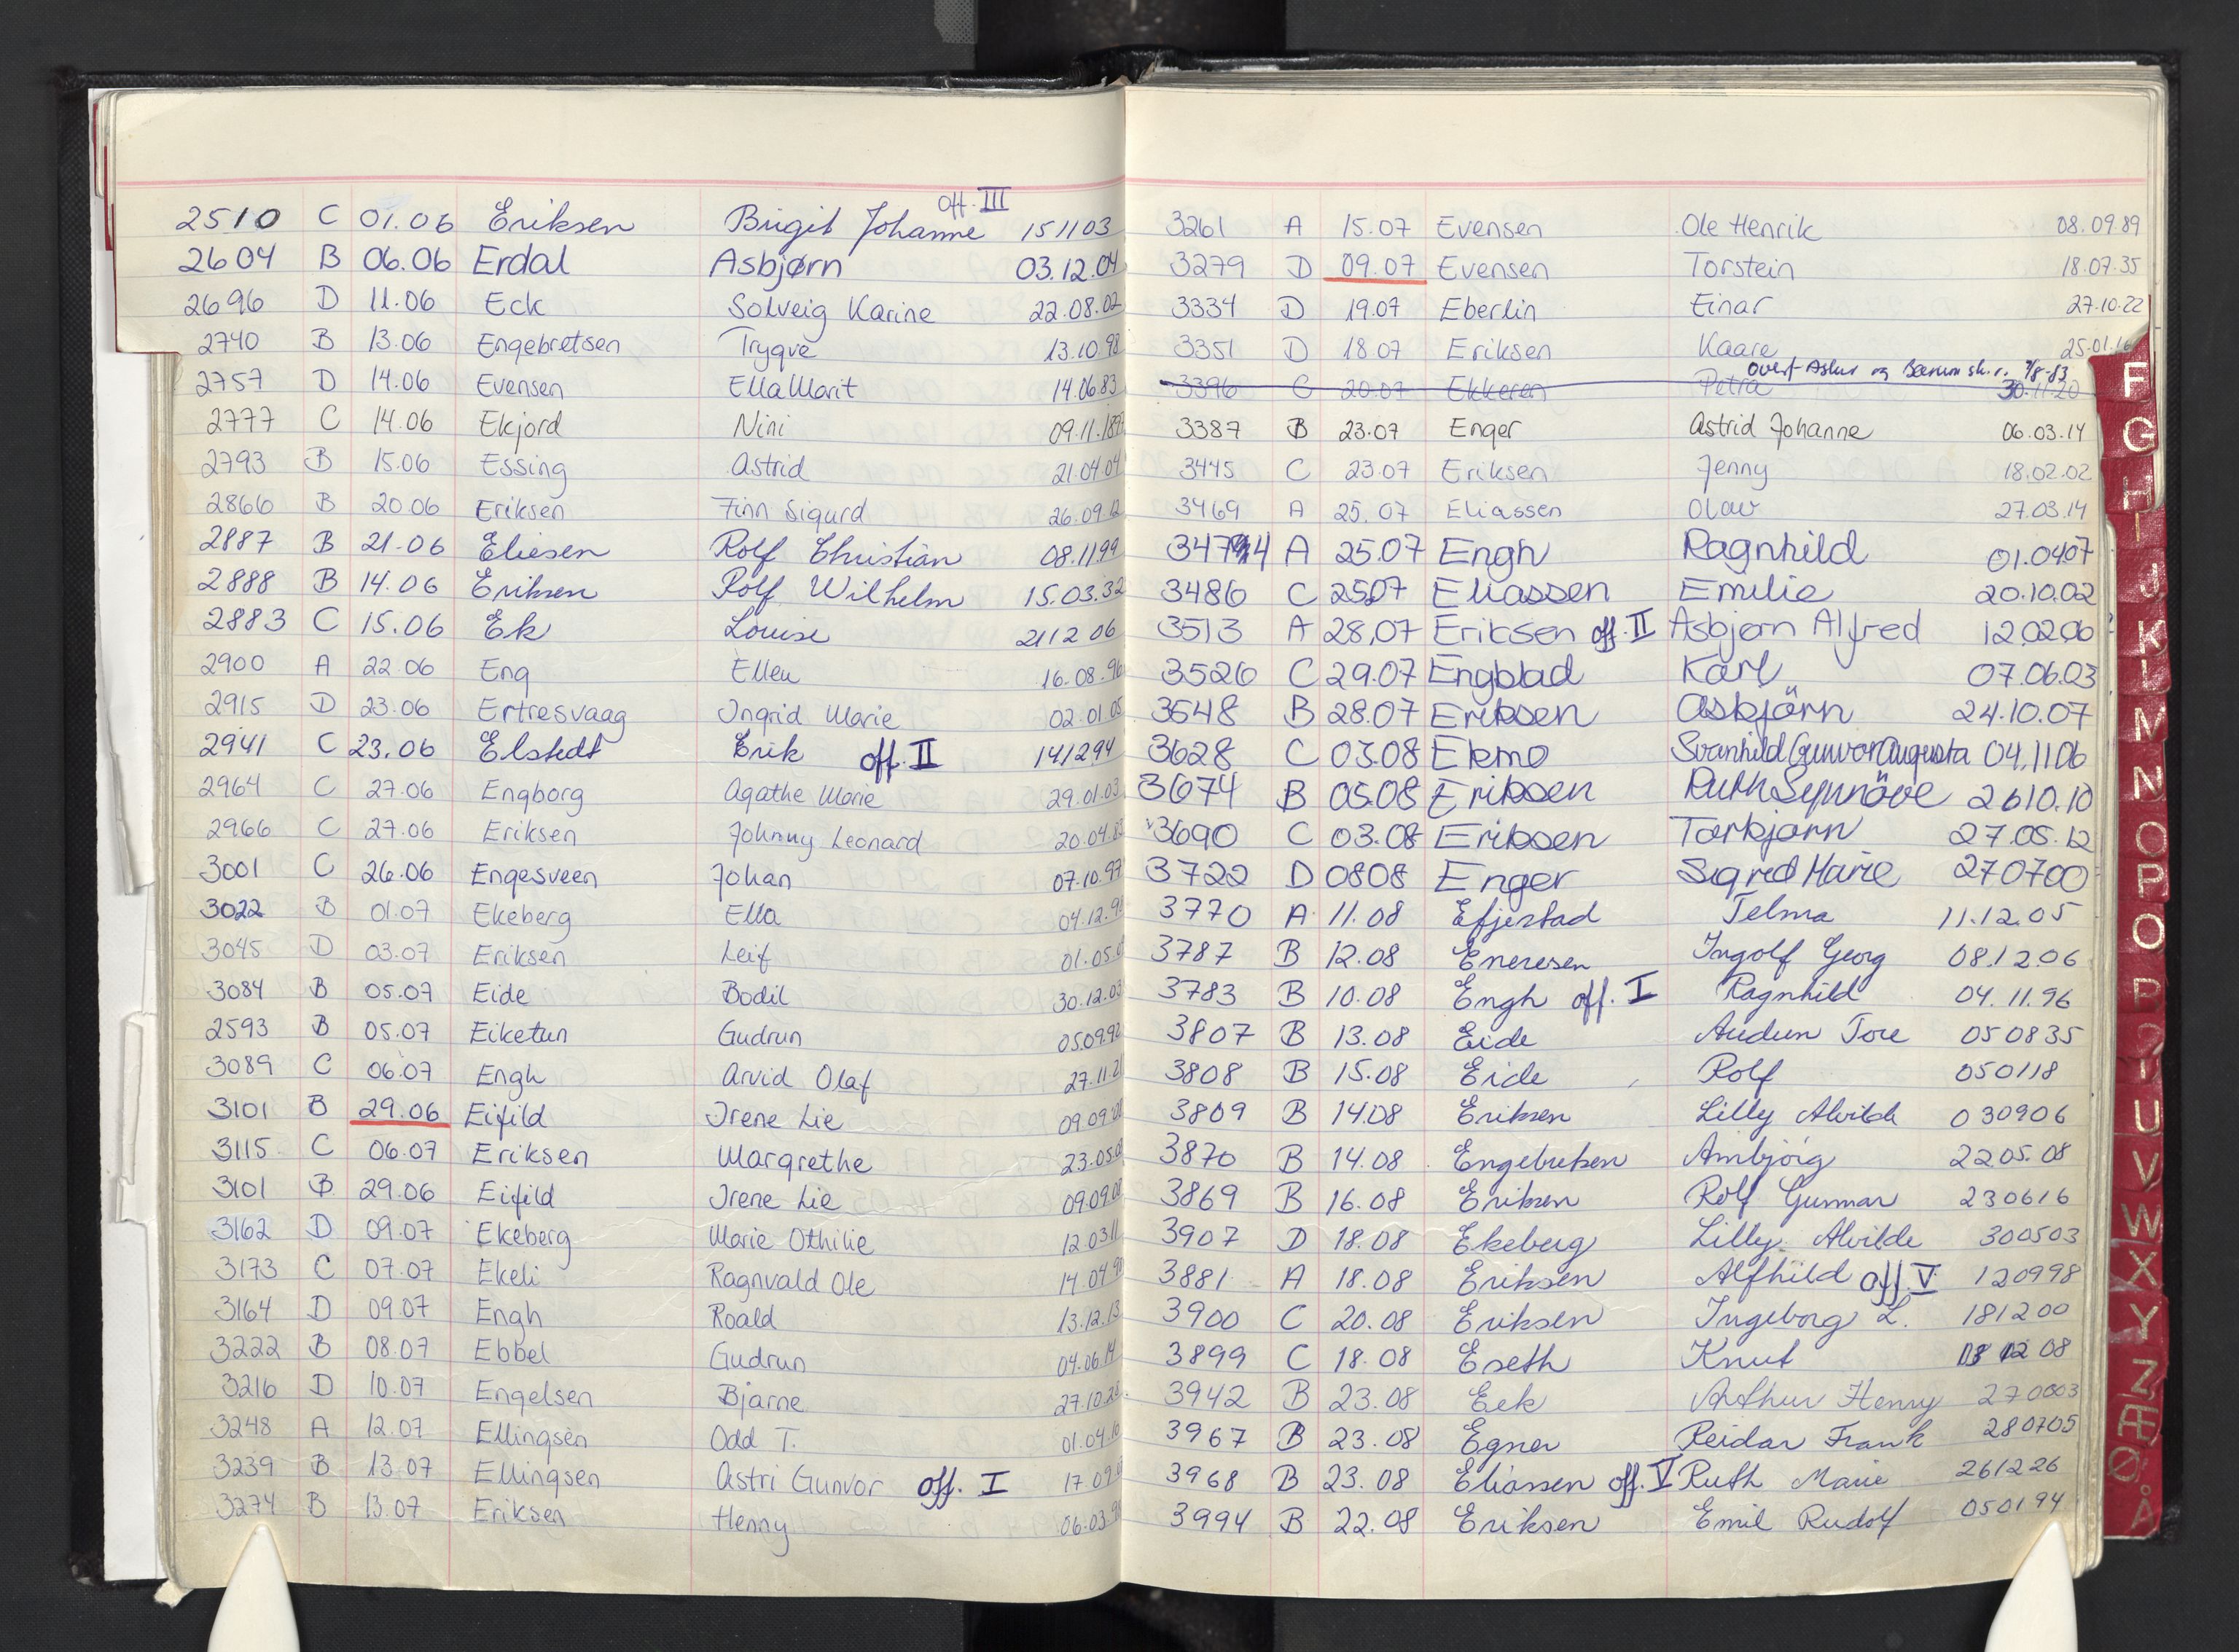 off. III
2510 C 01.06 Eriksen Birgit Johanne 151103
2604 B 06.06 Erdal Asbjørn 03.12.04
2696 D 11.06 Eck Solveig Karine 22.08.02
2740 B 13.06 Engebretsen Trygve 13.10.98
2757 D 14.06 Evensen Ella Marit 14.06.83
2777 C 14.06 Ekjord Nini 09.11.1897
2793 B 15.06 Essing Astrid 21.04.04
2866 B 20.06 Eriksen Finn Sigurd 26.09.12
2887 B 21.06 Eliesen Rolf Christian 08.11.99
2888 B 14.06 Eriksen Rolf Wilhelm 15.03.32
2883 C 15.06 Ek Louise 2112 06
2900 A 22.06 Eng Ellen 16.08.96
2915 D 23.06 Ertresvaag Ingrid Marie 02.01.05
2941 C 23.06 Elstedt Erik off. II 141294
2964 C 27.06 Engborg Agathe Marie 29.01.03
2966 C 27.06 Eriksen Johnny Leonard 20.04.
3001 C 26.06 Engesveen Johan 07.10.97
3022 B 01.07 Ekeberg Ella 04.12.9
3045 D 03.07 Eriksen Leif 01.05.
3084 B 05.07 Eide Bodil 30.12.03
2593 B 05.07 Eiketun Gudrun 05.09.92
3089 C 06.07 Engh Arvid Olaf 27.11.21
3101 B 29.06 Eifild Irene Lie 09.09.08
3115 C 06.07 Eriksen Margrethe 23.05.0
3101 B 29.06 Eifild Irene Lie 09.09.08
3162 D 09.07 Ekeberg Marie Othilie 12.0311
3173 C 07.07 Ekeli Ragnvald Ole 14.04.98
3164 D 09.07 Engh Roald 13.12.13
3222 B 08.07 Ebbel Gudrun 04.06.14
3216 D 10.07 Engelsen Bjarne 27.10.28
3248 A 12.07 Ellingsen Odd T. 01.04.10
3239 B 13.07 Ellingsen Astri Gunvor off. I 17.09.
3274 B 13.07 Eriksen Henny 06.03.98
3261 A 15.07 Evensen Ole Henrik 08.09.89
3279 D 09.07 Evensen Torstein 18.07.35
3334 D 19.07 Eberlin Einar 27.10.22
3351 D 18.07 Eriksen Kaare 25.01.16
Overf. Asker og Bærum sk.r. 9/8-83
3396 C 20.07 Ekkeren Petra 30.11.20
3387 B 23.07 Enger Astrid Johanne 06.03.14
3445 C 23.07 Eriksen Jenny 18.02.02
3469 A 25.07 Eliassen Olav 27.03.14
3474 A 25.07 Engh Ragnhild 01.0407
3486 C 2507 Eliassen Emilie 20.10.02
3513 A 28.07 Eriksen off. II Asbjørn Alfred 120206
3526 C 29.07 Engblad Karl 07.06.03
3548 B 28.07 Eriksen Asbjörn 24.10.07
3628 C 03.08 Ekmo Svanhild Gunvor Augusta 04.1106
3674 B 05.08 Eriksen Ruth Synnöve 2610.10
3690 C 03.08 Eriksen Torbjørn 27.05.12
3722 D 0808 Enger Sigrid Marie 270700
3770 A 11.08 Efjestad Telma 11.12.05
3787 B 12.08 Enersen Ingolf Georg 08.12.06
3783 B 10.08 Engh off. I Ragnhild 04.11.96
3807 B 13.08 Eide Audun Tore 050835
3808 B 15.08 Eide Rolf 050118
3809 B 14.08 Eriksen Lilly Alvilde 030906
3870 B 14.08 Engebretsen Arnbjörg 2205.08
3869 B 16.08 Eriksen Rolf Gunnar 230616
3907 D 18.08 Ekeberg Lilly Alvilde 300503
3881 A 18.08 Eriksen Alfhild off. V 120998
3900 C 20.08 Eriksen Ingeborg L. 181200
3899 C 18.08 Eseth Knut 13 12 08
3942 B 23.08 Eek Arthur Henry 270803
3967 B 23.08 Egner Reidar Frank 280705
3968 B 23.08 Eliassen off. V Ruth Marie 261226
3994 B 22.08 Eriksen Emil Rudolf 050194
F
G
H
I
J
K
L
M
N
O
P
Q
R
S
T
U
V
W
X
Y
Z
Æ
Ø
Å